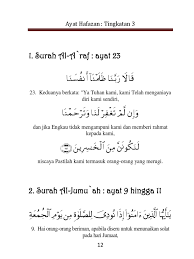 Ayat Hafazan : Tingkatan 3
1. Surah Al-A`raf : ayat 23
قَالَا رَبَّنَا ظَلَمْنَا أَنفُسَنَا
23. Keduanya berkata: "Ya Tuhan kami, kami Telah menganiaya
diri kami sendiri,
وَإِن لَّمْ تَغْفِرْ لَنَا وَتَرْحَمْنَا
dan jika Engkau tidak mengampuni kami dan memberi rahmat
kepada kami,
لَنَكُونَنَّ مِنَ الْخَاسِرِينَ ﴿٢٣﴾
niscaya Pastilah kami termasuk orang-orang yang merugi.
2. Surah Al-Jumu`ah : ayat 9 hingga 11
يَا أَيُّهَا الَّذِينَ آمَنُوا إِذَا نُودِيَ لِلصَّلَاةِ مِن يَوْمِ الْجُمُعَةِ
9. Hai orang-orang beriman, apabila diseru untuk menunaikan solat
pada hari Jumaat,
12